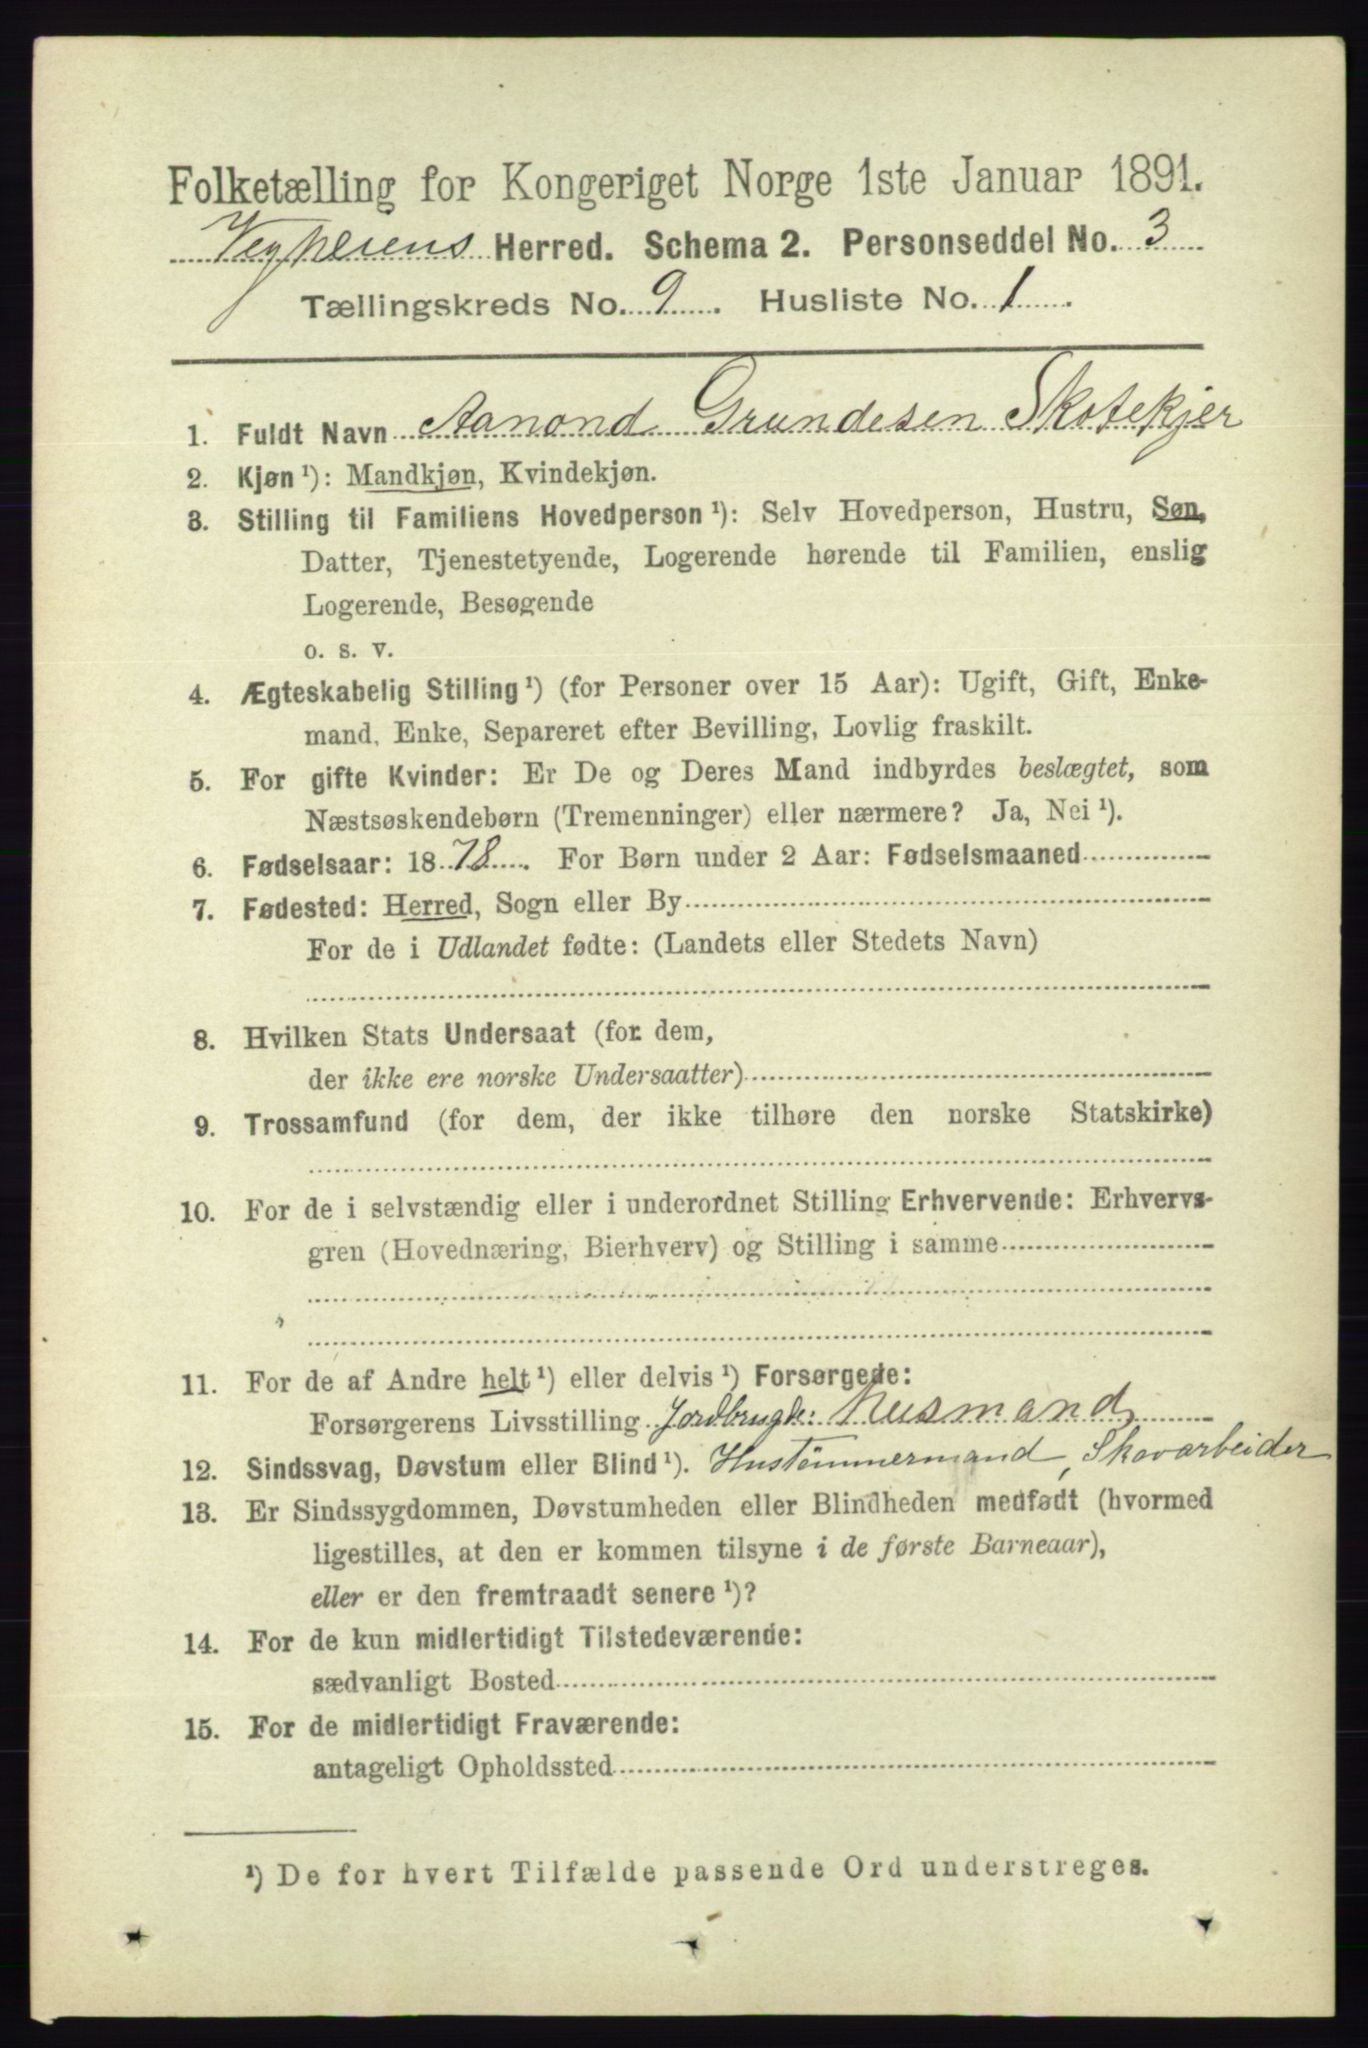 Folketælling for Kongeriget Norge 1ste Januar 1891.
Vegusheiens Herred. Schema 2. Personseddel No. 3
Tællingskreds No. 9. Husliste No. 1.
1. Fuldt Navn Aanond Grundesen Skotekjær
2. Kjøn ¹): Mandkjøn, Kvindekjøn.
3. Stilling til Familiens Hovedperson ¹): Selv Hovedperson, Hustru, Søn,
Datter, Tjenestetyende, Logerende hørende til Familien, enslig
Logerende, Besøgende
o. s. v.
4. Ægteskabelig Stilling ¹) (for Personer over 15 Aar): Ugift, Gift, Enke-
mand, Enke, Separeret efter Bevilling, Lovlig fraskilt.
5. For gifte Kvinder: Er De og Deres Mand indbyrdes beslægtet, som
Næstsøskendebørn (Tremenninger) eller nærmere? Ja, Nei ¹).
6. Fødselsaar: 1878. For Børn under 2 Aar: Fødselsmaaned
7. Fødested: Herred, Sogn eller By
For de i Udlandet fødte: (Landets eller Stedets Navn)
8. Hvilken Stats Undersaat (for dem,
der ikke ere norske Undersaatter)
9. Trossamfund (for dem, der ikke tilhøre den norske Statskirke)
10. For de i selvstændig eller i underordnet Stilling Erhvervende: Erhvervs-
gren (Hovednæring, Bierhverv) og Stilling i samme
11. For de af Andre helt ¹) eller delvis ¹) Forsørgede:
Forsørgerens Livsstilling Jordbrugde: Husmand,
12. Sindssvag, Døvstum eller Blind ¹). Hustømmermand, Skovarbeider
13. Er Sindssygdommen, Døvstumheden eller Blindheden medfødt (hvormed
ligestilles, at den er kommen tilsyne i de første Barneaar),
eller er den fremtraadt senere ¹)?
14. For de kun midlertidigt Tilstedeværende:
sædvanligt Bosted
15. For de midlertidigt Fraværende:
antageligt Opholdssted
¹) De for hvert Tilfælde passende Ord understreges.